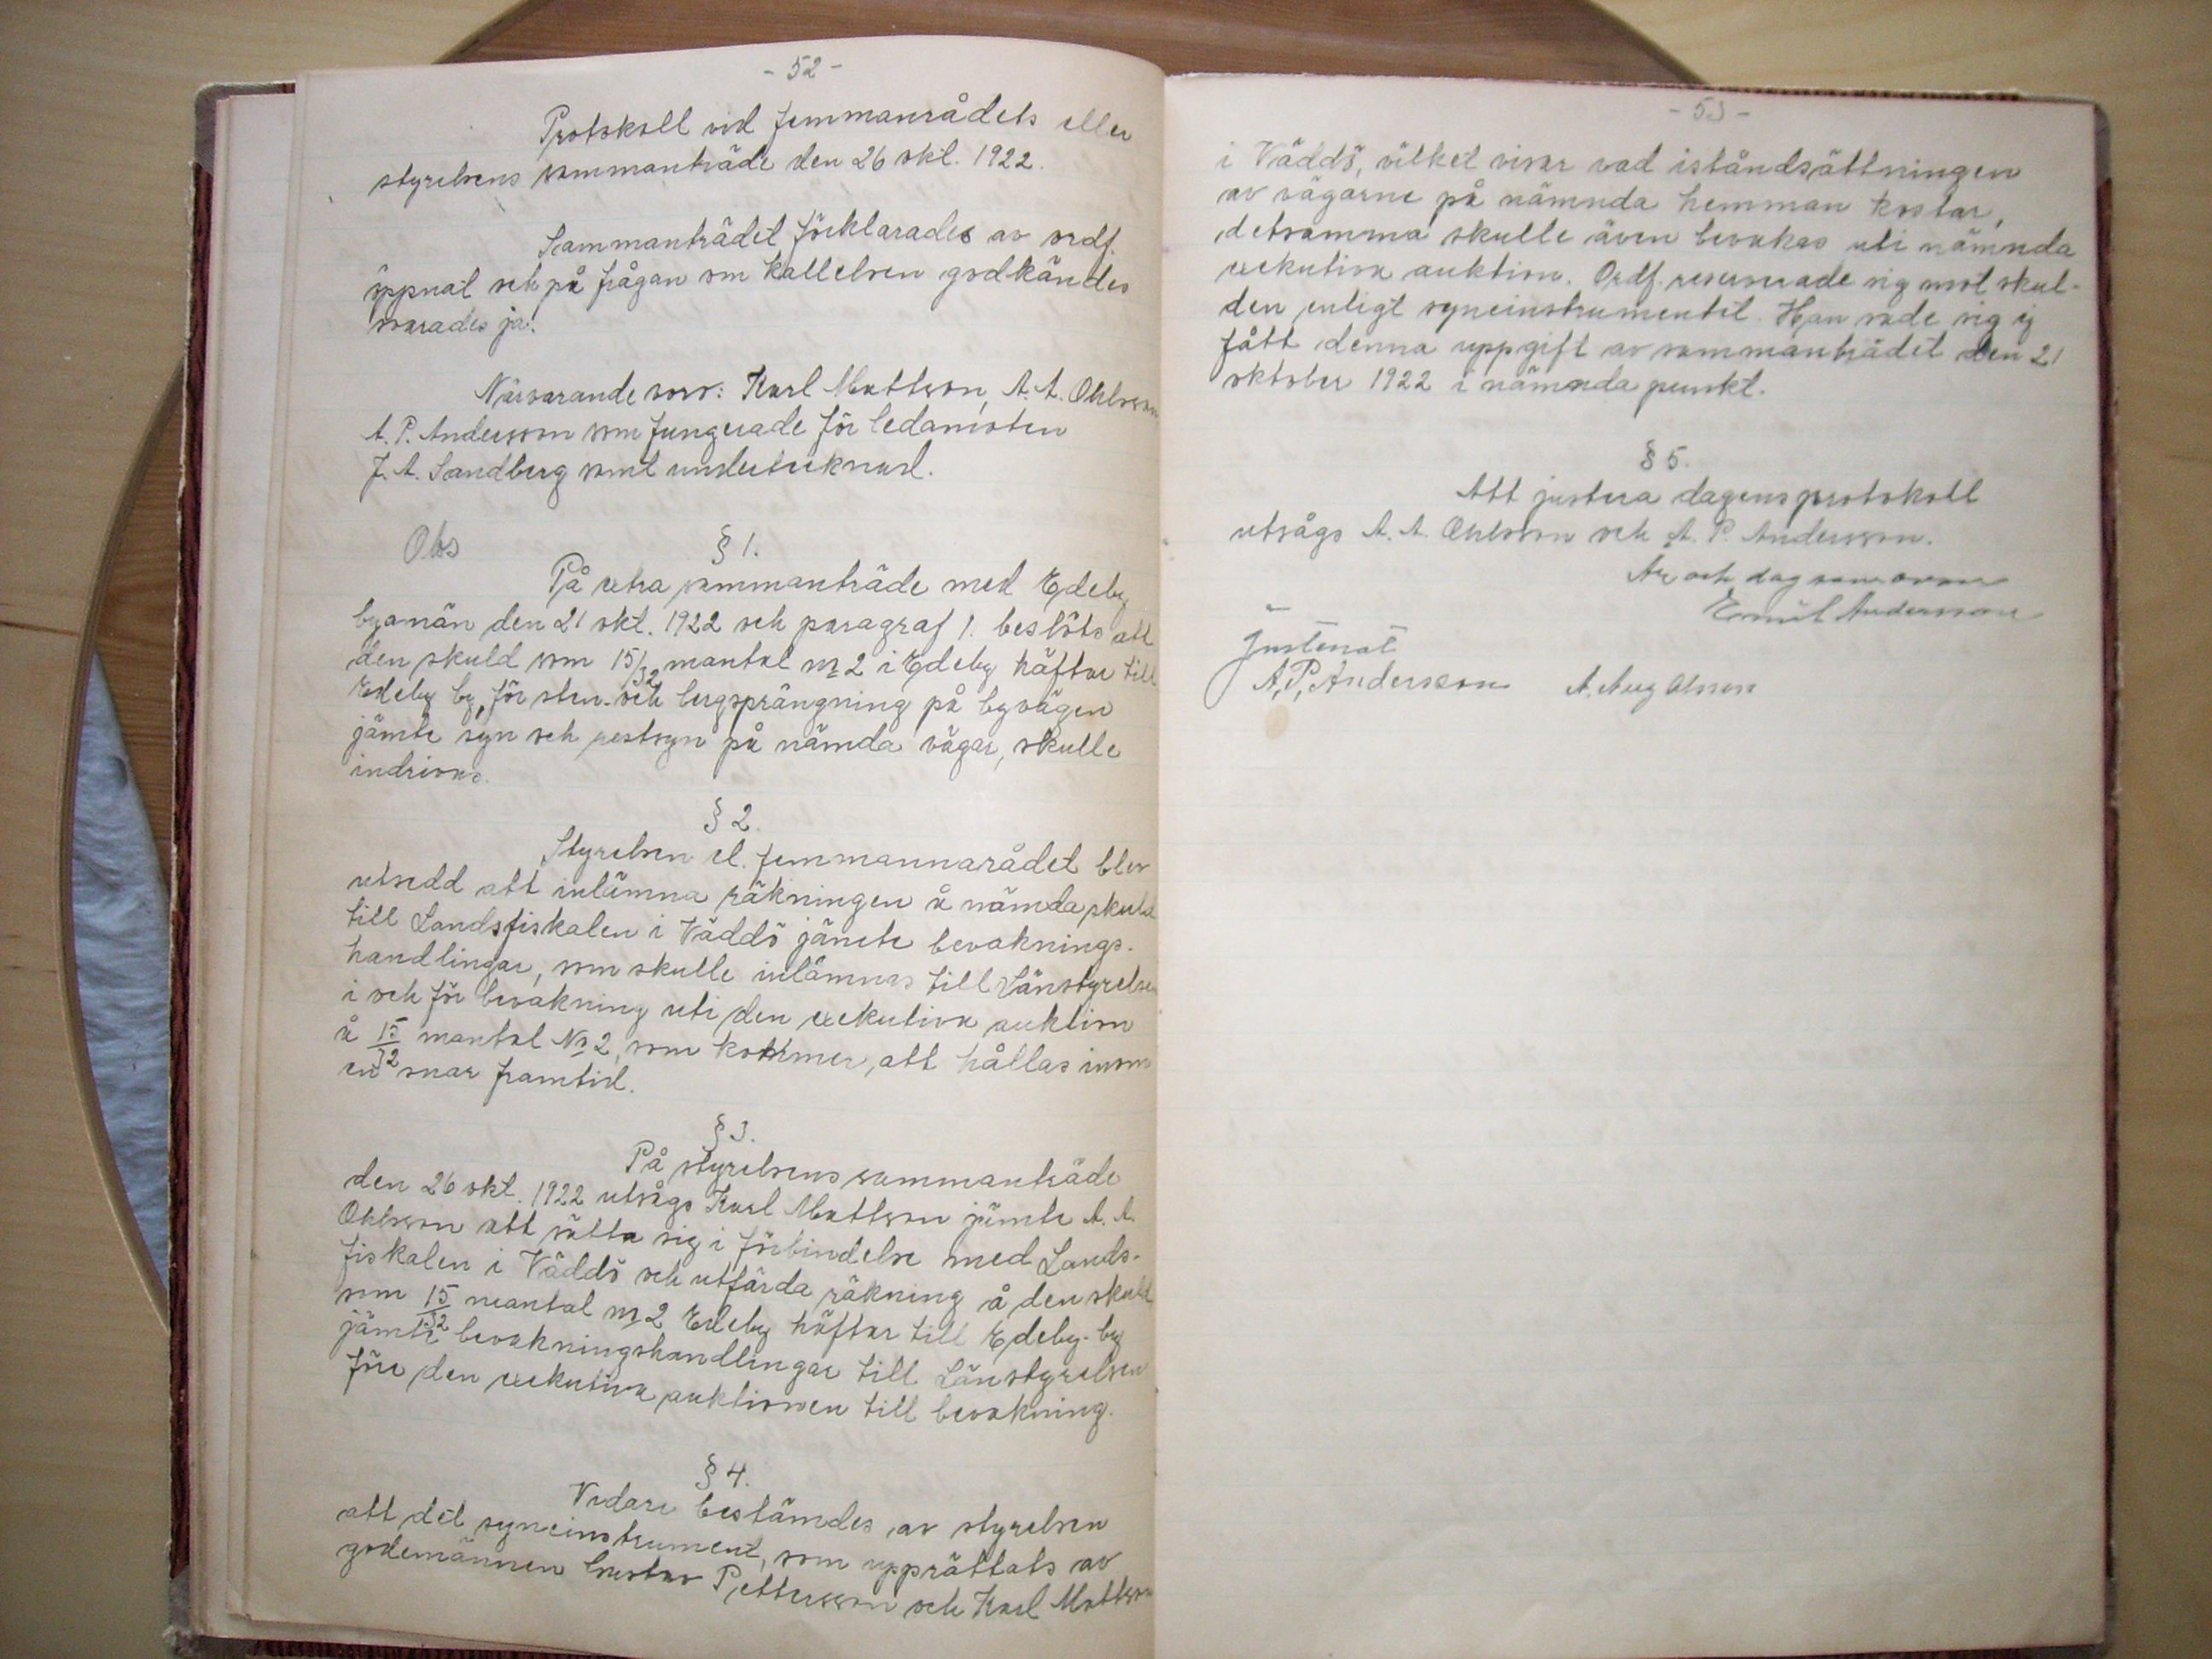 - 52 -
Protokoll vid femmanrådets eller
styrelsens sammanträde den 26 okt. 1922.
Sammanträdet förklarades av ordf.
öppnat och på frågan om kallelsen godkändes
svarades ja.
Närvarande voro: Karl Mattsson, A. A. Ohlsson
A. P. Andersson som fungerade för ledamoten
J. A. Sandberg samt undertecknad.
Obs
§ 1.
På extra sammanträde med Edeby
byamän den 21 okt. 1922 och paragraf 1. beslöts att
den skuld som 15/32 mantal nr 2 i Edeby häftar till
Edeby by, för sten- och bergsprängning på byvägen
jämte syn och restsyn på nämda vägar, skulle
indrivas.
§ 2.
Styrelsen el. femmannarådet blev
utsedd att inlämna räkningen å nämda skuld
till Landsfiskalen i Väddö jämte bevaknings-
handlingar, som skulle inlämnas till Länstyrelsen
i och för bevakning uti den exekutiva auktion
å 15/32 mantal No 2, som kommer, att hållas inom
en snar framtid.
§ 3.
På styrelsens sammanträde
den 26 okt. 1922 utsågs Karl Mattsson jämte A. A.
Ohlsson att sätta sig i förbindelse med Lands-
fiskalen i Väddö och utfärda räkning å den skuld
som 15/32 mantal nr 2 Edeby häftar till Edeby-by
jämte bevakningshandlingar till Länstyrelsen
före den exekutiva auktionen till bevakning.
§ 4.
Vidare bestämdes av styrelsen
att det syneinstrument, som upprättats av
godemännen Gustav Pettersson och Karl Mattsson
- 53 -
i Väddö, vilket visar vad iståndsättningen
av vägarne på nämnda hemman kostar,
detsamma skulle även bevakas uti nämnda
exekutiva auktion. Ordf. reserverade sig mot skul-
den enligt syneinstrumentet. Han sade sig ej
fått denna uppgift av sammanträdet den 21
oktober 1922 i nämnda punkt.
§ 5.
Att justera dagens protokoll
utsågs A. A. Ohlsson och A. P. Andersson.
År och dag som ovan
Emil Andersson
Justerat
A, P, Andersson A. Aug Olsson